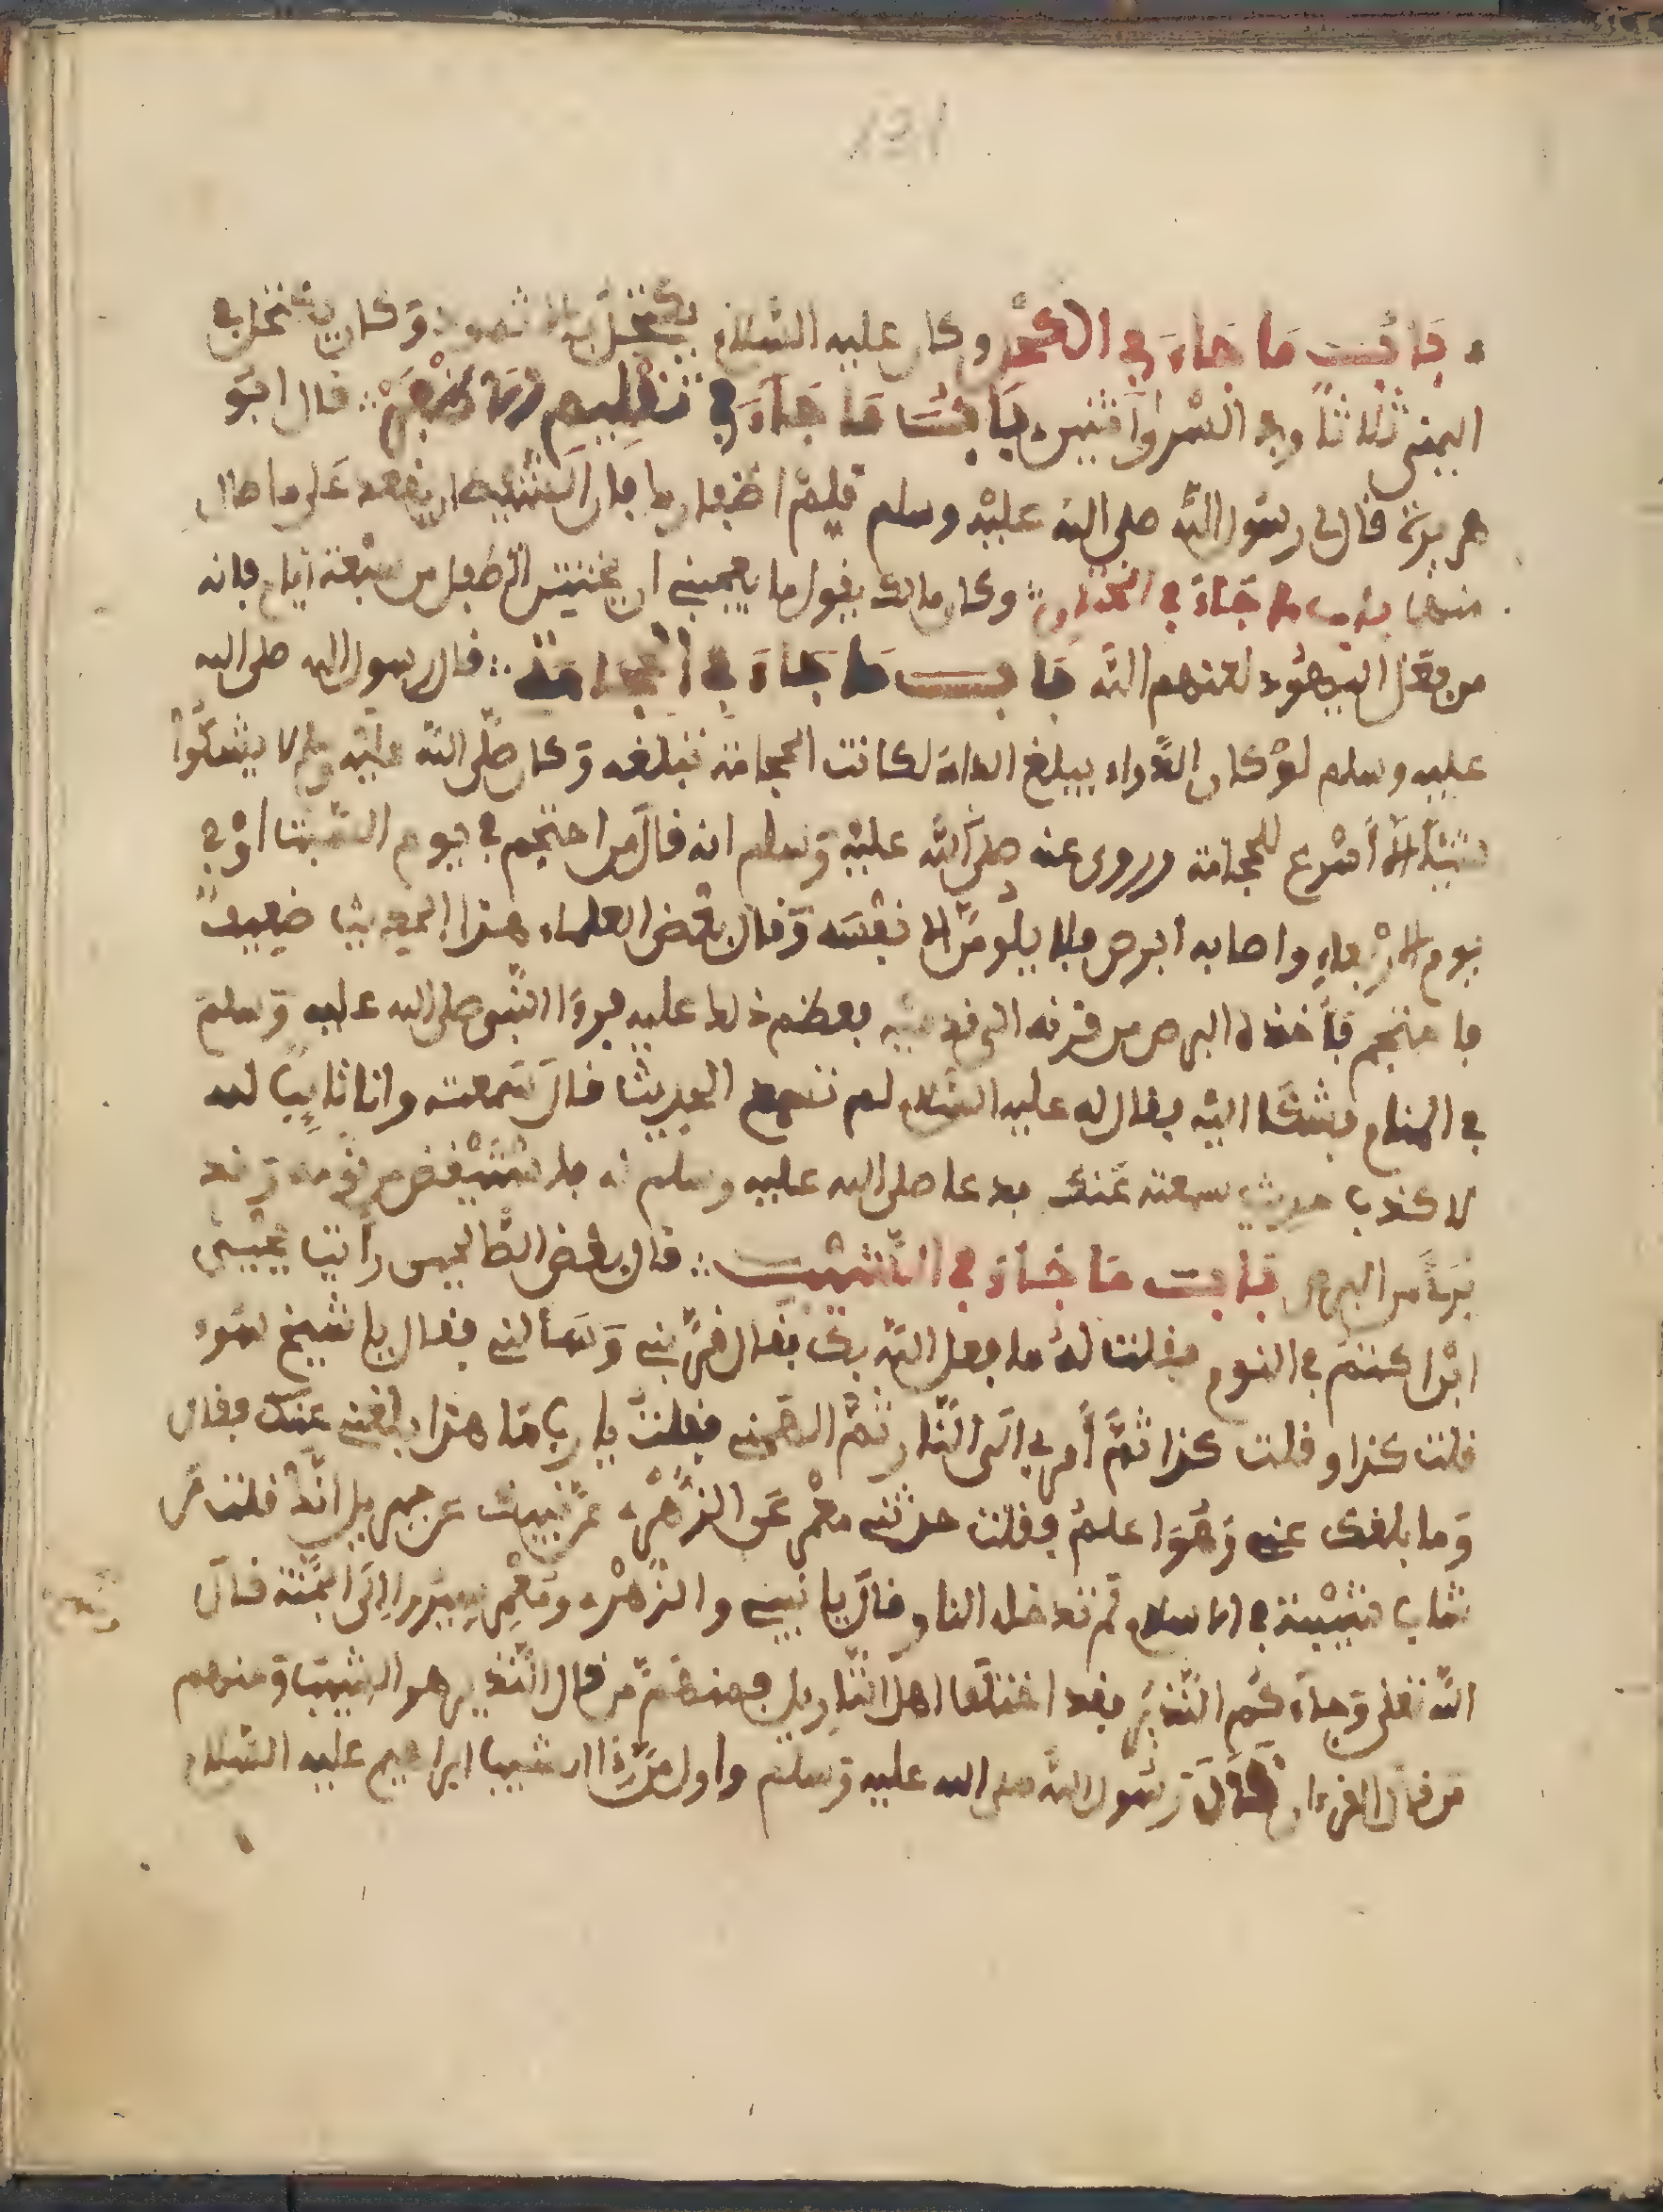 131
باب ما جاء في الكحل وكان عليه السلام يكتحل بالاثمد وكان يكتحل في
اليمنى ثلاثا وفي اليسرى اثنين باب ما جاء في تقليم الاظفار قال ابو
هريرة قال لي رسول الله صلى الله عليه وسلم قلم اظفارك فان الشيطان يقعد على ما طال
منها باب ما جاء في الختان وكان مالك يقول ما يعجبني ان يختتن الطفل من سبعة ايام فانه
من فعل اليهود لعنهم الله باب ما جاء في الحجامة قال رسول الله صلى الله
عليه وسلم لو كان الدواء يبلغ الداء لكانت الحجامة تبلغه وكان صلى الله عليه وسلم لا يشكوا
شيئا الا أسرع للحجامة وروي عنه صلى الله عليه وسلم انه قال من احتجم في يوم السبت او في
يوم الاربعاء واصابه ابرص فلا يلومن الا نفسه وقال بعض العلماء هذا الحديث ضعيف
فاحتجم فأخذه البرص من قرنه الى قدميه فعظم ذلك عليه فرءا النبي صلى الله عليه وسلم
في المنام فشكا اليه فقال له عليه السلام لم تسمع الحديث قال سمعته وانا ثابيا له
لا كذب حديث سمعته عنك فدعا صلى الله عليه وسلم له فاستيقض من نومه وقد
برئ من البرص باب ما جاء في الشيب قال بعض الصالحين رأيت يحيى
ابن اكتم في النوم فقلت له ما فعل الله بك فقال قربني وسألني فقال يا شيخ سوء
قلت كذا وقلت كذا ثم أمر بي الى النار ثم الهمني فقلت يا رب ما هذا بلغني عنك فقال
وما بلغك عني وهو اعلم فقلت حدثني معمر عن الزهري عن نبيك عن جبريل انك قلت من
شاب شيبة في الاسلام لم تدخله النار قال يا نبيي والزهري ومعمر بروا الى الجنة قال
الله تعلى وجاءكم النذير فقد اختلفا اهل التاويل فمنهم من قال النذير هو الشيب ومنهم
من قال القرءان وقال رسول الله صلى الله عليه وسلم واول من رءا الشيب ابراهيم عليه السلام